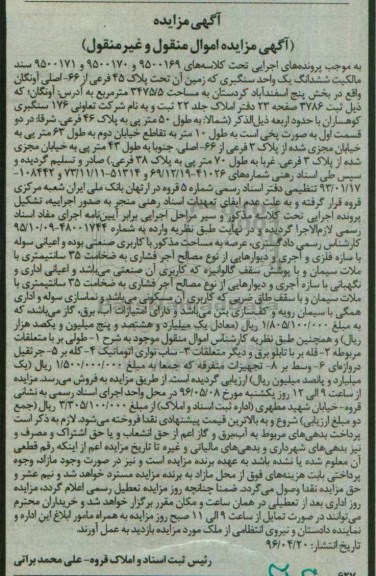 آگهی مزایده
(آگهی مزایده اموال منقول و غیرمنقول)
به موجب پرونده‌های اجرایی تحت کلاسه‌های ۹۵۰۰۱۶۹ و ۹۵۰۰۱۷۰ و ۹۵۰۰۱۷۱ سند
مالکیت ششدانگ یک واحد سنگبری که زمین آن تحت پلاک ۴۵ فرعی از ۶۶- اصلی آونگان
واقع در بخش پنج اسفندآباد کردستان به مساحت ۳۴۷۵/۵ مترمربع به آدرس: آونگان؛ که
ذیل ثبت ۳۷۸۶ صفحه ۲۳ دفتر املاک جلد ۲۲ ثبت و به نام شرکت تعاونی ۱۷۶ سنگبری
کوهساران با حدود اربعه ذیل‌الذکر (شمالا: به طول ۵۰ متر پی به پلاک ۴۶ فرعی. شرقا: در دو
قسمت اول به صورت پخی است به طول ۱۰ متر به تقاطع خیابان دوم به طول ۶۳ متر پی به
خیابان مجزی شده از پلاک ۲ فرعی از ۶۶- اصلی. جنوبا به طول ۴۳ متر پی به خیابان مجزی
شده از پلاک ۳ فرعی. غربا به طول ۷۰ متر پی به پلاک ۳۸ فرعی.) صادر و تسلیم گردیده و
سپس طی اسناد رهنی شماره‌های ۴۱۰۲۶-۶۹/۱۲/۱۹ و ۵۱۳۱۴-۷۳/۱۱/۱۱ و ۱۰۸۴۴۲-
۹۳/۰۱/۱۷ تنظیمی دفتر اسناد رسمی شماره ۵ قروه در ارتهان بانک ملی ایران شعبه مرکزی
قروه قرار گرفته و به علت عدم ایفای تعهدات اسناد رهنی منجر به صدور اجراییه، تشکیل
پرونده اجرایی تحت کلاسه مذکور و سیر مراحل اجرایی برابر آیین‌نامه اجرای مفاد اسناد
رسمی لازم‌الاجرا گردیده و در نهایت طبق نظریه وارده به شماره ۴۸۰۰۱۷۴۴-۹۵/۱۰/۰۹
کارشناس رسمی دادگستری، عرصه به مساحت مذکور با کاربری صنعتی بوده و اعیانی سوله
با سازه فلزی و آجری و دیوارهایی از نوع مصالح آجر فشاری به ضخامت ۳۵ سانتیمتری با
ملات سیمان و با پوشش سقف گالوانیزه که کاربری آن صنعتی می‌باشد و اعیانی اداری و
نگهبانی با سازه آجری و دیوارهایی از نوع مصالح آجر فشاری به ضخامت ۳۵ سانتیمتری با
ملات سیمان و با سقف طاق ضربی که کاربری آن مسکونی می‌باشد و نماسازی سوله و اداری
همگی با سیمان رویه و کفسازی بتن می‌باشد و دارای امتیازات آب، برق، گاز می‌باشد، که
به مبلغ ۱/۸۰۵/۱۰۰/۰۰۰ ریال (معادل یک میلیارد و هشتصد و پنج میلیون و یکصد هزار
ریال) و همچنین طبق نظریه کارشناس اموال منقول موجود به شرح ۱- طولی بر با متعلقات
مربوطه ۲- قله بر با تابلو برق و دیگر متعلقات ۳- ساب نواری اتوماتیک ۴- کله بر ۵- جرثقیل
دروازه‌ای ۶- وسط بر ۸- تجهیزات متفرقه که جمعا به مبلغ ۱/۵۰۰/۰۰۰/۰۰۰ ریال (یک
میلیارد و پانصد میلیون ریال) ارزیابی گردیده است. از طریق مزایده به فروش می‌رسد. مزایده
از ساعت ۹ الی ۱۲ روز یکشنبه مورخ ۹۶/۰۵/۰۸ در محل واحد اجرای اسناد رسمی به نشانی
قروه- خیابان شهید مطهری (اداره ثبت اسناد و املاک) از مبلغ ۳/۳۰۵/۱۰۰/۰۰۰ ریال (جمع
دو مبلغ ارزیابی) شروع و به بالاترین قیمت پیشنهادی نقدا فروخته می‌شود. لازم به ذکر است
پرداخت بدهی‌های مربوط به آب، برق و گاز اعم از حق انشعاب و یا حق اشتراک و مصرف و
نیز بدهی‌های شهرداری و بدهی‌های مالیاتی و غیره تا تاریخ مزایده اعم از اینکه رقم قطعی
آن معلوم شده یا نشده باشد به عهده برنده مزایده است و نیز در صورت وجود مازاد وجوه
پرداختی بابت هزینه‌های فوق از محل مازاد به برنده مزایده مسترد خواهد شد و نیم عشر و
حق مزایده نقدا وصول می‌گردد. ضمنا چنانچه روز مزایده تعطیل رسمی اعلام گردد، مزایده
روز اداری بعد از تعطیلی در همان ساعت و مکان مقرر برگزار خواهد شد و خریداران محترم
می‌توانند در صورت تمایل از ساعت ۹ الی ۱۱ صبح روز مزایده به همراه مامور ابلاغ این اداره و
نماینده دادستان و نیروی انتظامی از ملک مورد مزایده بازدید به عمل آورند.
تاریخ انتشار: ۹۶/۰۴/۲۰
رئیس ثبت اسناد و املاک قروه- علی محمد براتی
۶۲۷